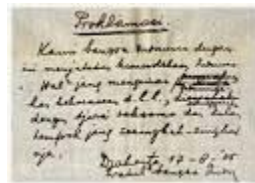 Proklamasi.
Kami bangsa Indonesia dengan
ini menjatakan kemerdekaan Indonesia
Hal² jang mengenai
kekoeasaan d.l.l.,
dengan tjara saksama dan dalam
tempoh jang sesingkat-singkat
nja.
Djakarta 17-8-'05
bangsa Indon